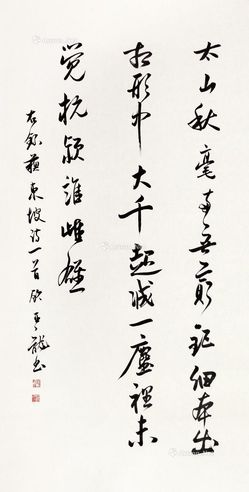 太山秋毫兩無窮鉅細本出
相形中大千起滅一塵裡未
覺杭潁誰雌雄
右錄蘇東坡詩一首 龍書